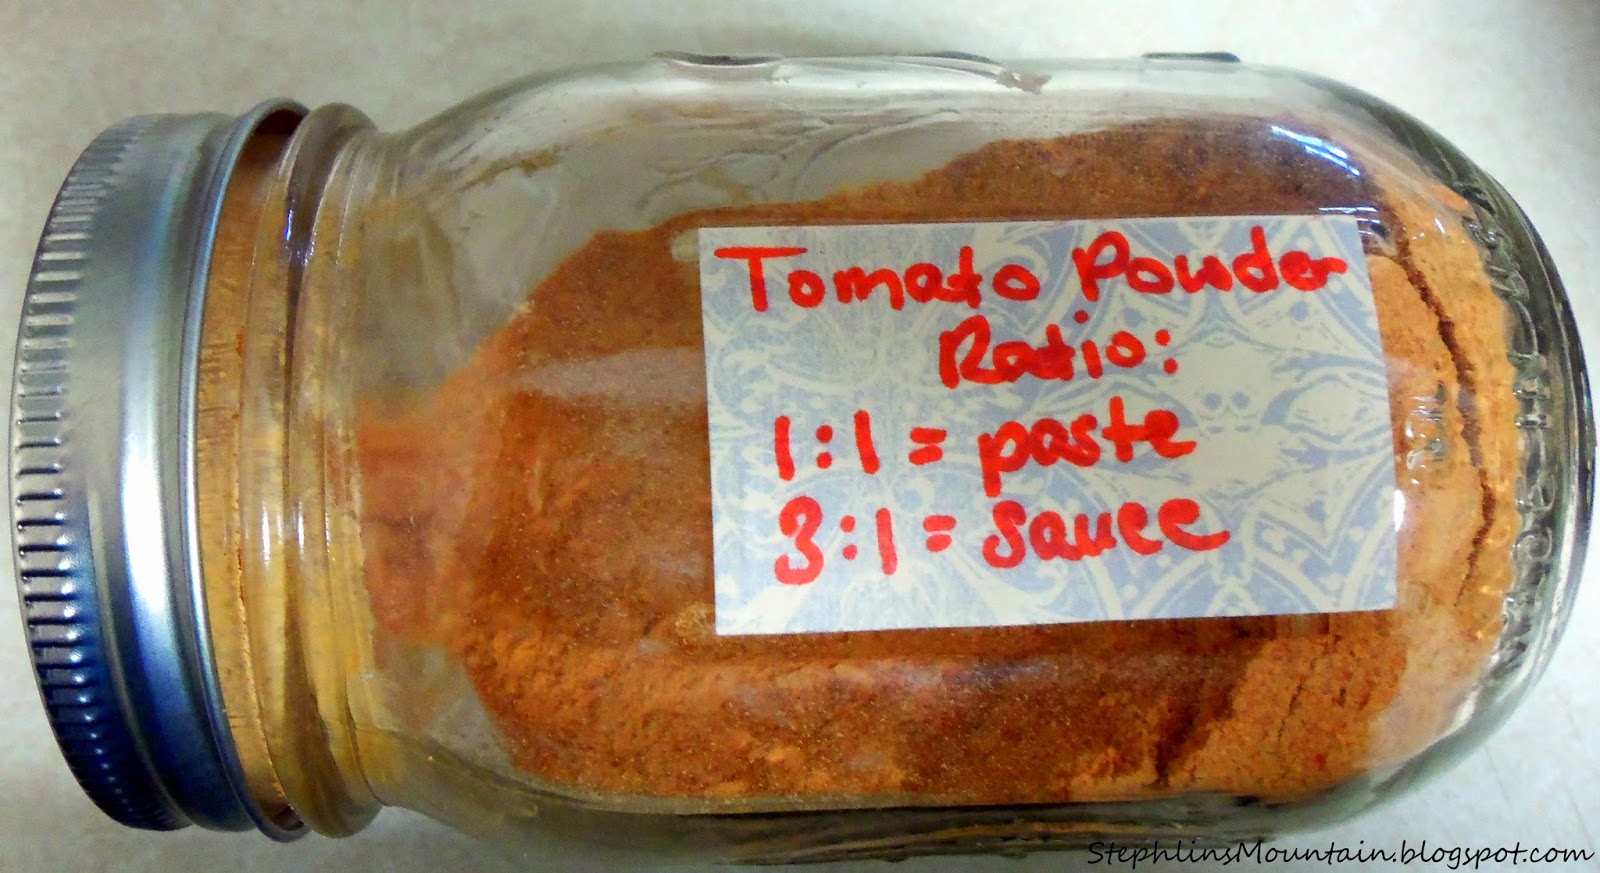 Tomato Powder
Ratio:
1:1 = paste
3:1 = sauce
StephlinsMountain.blogspot.com